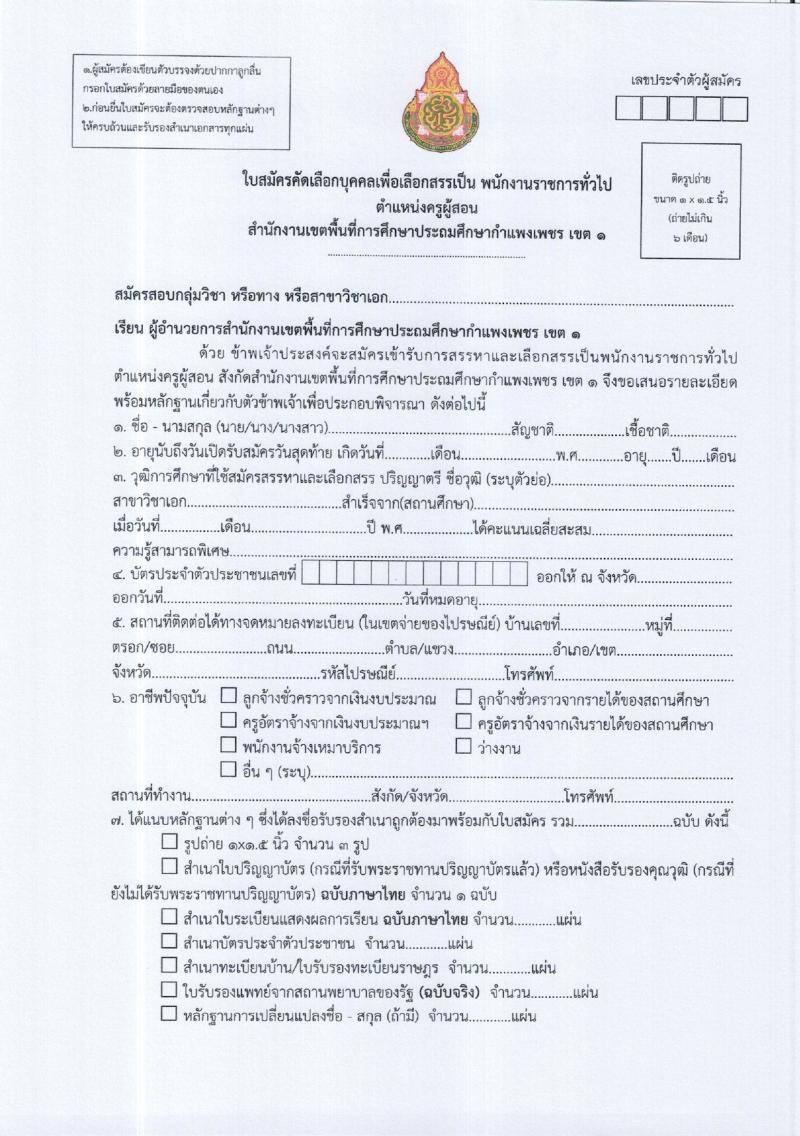 ๑.ผู้สมัครต้องเขียนตัวบรรจงด้วยปากกาลูกลื่น
กรอกใบสมัครด้วยลายมือของตนเอง
๒.ก่อนยื่นใบสมัครจะต้องตรวจสอบหลักฐานต่างๆ
ให้ครบถ้วนและรับรองสำเนาเอกสารทุกแผ่น
เลขประจำตัวผู้สมัคร
ติดรูปถ่าย
ขนาด ๑ x ๑.๕ นิ้ว
(ถ่ายไม่เกิน
๖ เดือน)
ใบสมัครคัดเลือกบุคคลเพื่อเลือกสรรเป็น พนักงานราชการทั่วไป
ตำแหน่งครูผู้สอน
สำนักงานเขตพื้นที่การศึกษาประถมศึกษากำแพงเพชร เขต ๑
สมัครสอบกลุ่มวิชา หรือทาง หรือสาขาวิชาเอก..........
เรียน ผู้อำนวยการสำนักงานเขตพื้นที่การศึกษาประถมศึกษากำแพงเพชร เขต ๑
ด้วย ข้าพเจ้าประสงค์จะสมัครเข้ารับการสรรหาและเลือกสรรเป็นพนักงานราชการทั่วไป
ตำแหน่งครูผู้สอน สังกัดสำนักงานเขตพื้นที่การศึกษาประถมศึกษากำแพงเพชร เขต ๑ จึงขอเสนอรายละเอียด
พร้อมหลักฐานเกี่ยวกับตัวข้าพเจ้าเพื่อประกอบพิจารณา ดังต่อไปนี้
๑. ชื่อ - นามสกุล (นาย/นาง/นางสาว)..........สัญชาติ..........เชื้อชาติ..........
๒. อายุนับถึงวันเปิดรับสมัครวันสุดท้าย เกิดวันที่..........เดือน..........พ.ศ..........อายุ......ปี......เดือน
๓. วุฒิการศึกษาที่ใช้สมัครสรรหาและเลือกสรร ปริญญาตรี ชื่อวุฒิ (ระบุตัวย่อ)..........
สาขาวิชาเอก..........สำเร็จจาก(สถานศึกษา)..........
เมื่อวันที่..........เดือน..........ปี พ.ศ..........ได้คะแนนเฉลี่ยสะสม..........
ความรู้สามารถพิเศษ..........
๔. บัตรประจำตัวประชาชนเลขที่ ออกให้ ณ จังหวัด..........
ออกวันที่..........วันที่หมดอายุ..........
๕. สถานที่ติดต่อได้ทางจดหมายลงทะเบียน (ในเขตจ่ายของไปรษณีย์) บ้านเลขที่..........หมู่ที่..........
ตรอก/ซอย..........ถนน..........ตำบล/แขวง..........อำเภอ/เขต..........
จังหวัด..........รหัสไปรษณีย์..........โทรศัพท์..........
๖. อาชีพปัจจุบัน ☐ ลูกจ้างชั่วคราวจากเงินงบประมาณ ☐ ลูกจ้างชั่วคราวจากรายได้ของสถานศึกษา
☐ ครูอัตราจ้างจากเงินงบประมาณฯ ☐ ครูอัตราจ้างจากเงินรายได้ของสถานศึกษา
☐ พนักงานจ้างเหมาบริการ ☐ ว่างงาน
☐ อื่น ๆ (ระบุ)..........
สถานที่ทำงาน..........สังกัด/จังหวัด..........โทรศัพท์..........
๗. ได้แนบหลักฐานต่าง ๆ ซึ่งได้ลงชื่อรับรองสำเนาถูกต้องมาพร้อมกับใบสมัคร รวม..........ฉบับ ดังนี้
☐ รูปถ่าย ๑x๑.๕ นิ้ว จำนวน ๓ รูป
☐ สำเนาใบปริญญาบัตร (กรณีที่รับพระราชทานปริญญาบัตรแล้ว) หรือหนังสือรับรองคุณวุฒิ (กรณีที่
ยังไม่ได้รับพระราชทานปริญญาบัตร) ฉบับภาษาไทย จำนวน ๑ ฉบับ
☐ สำเนาใบระเบียนแสดงผลการเรียน ฉบับภาษาไทย จำนวน..........แผ่น
☐ สำเนาบัตรประจำตัวประชาชน จำนวน..........แผ่น
☐ สำเนาทะเบียนบ้าน/ใบรับรองทะเบียนราษฎร จำนวน..........แผ่น
☐ ใบรับรองแพทย์จากสถานพยาบาลของรัฐ (ฉบับจริง) จำนวน..........แผ่น
☐ หลักฐานการเปลี่ยนแปลงชื่อ - สกุล (ถ้ามี) จำนวน..........แผ่น